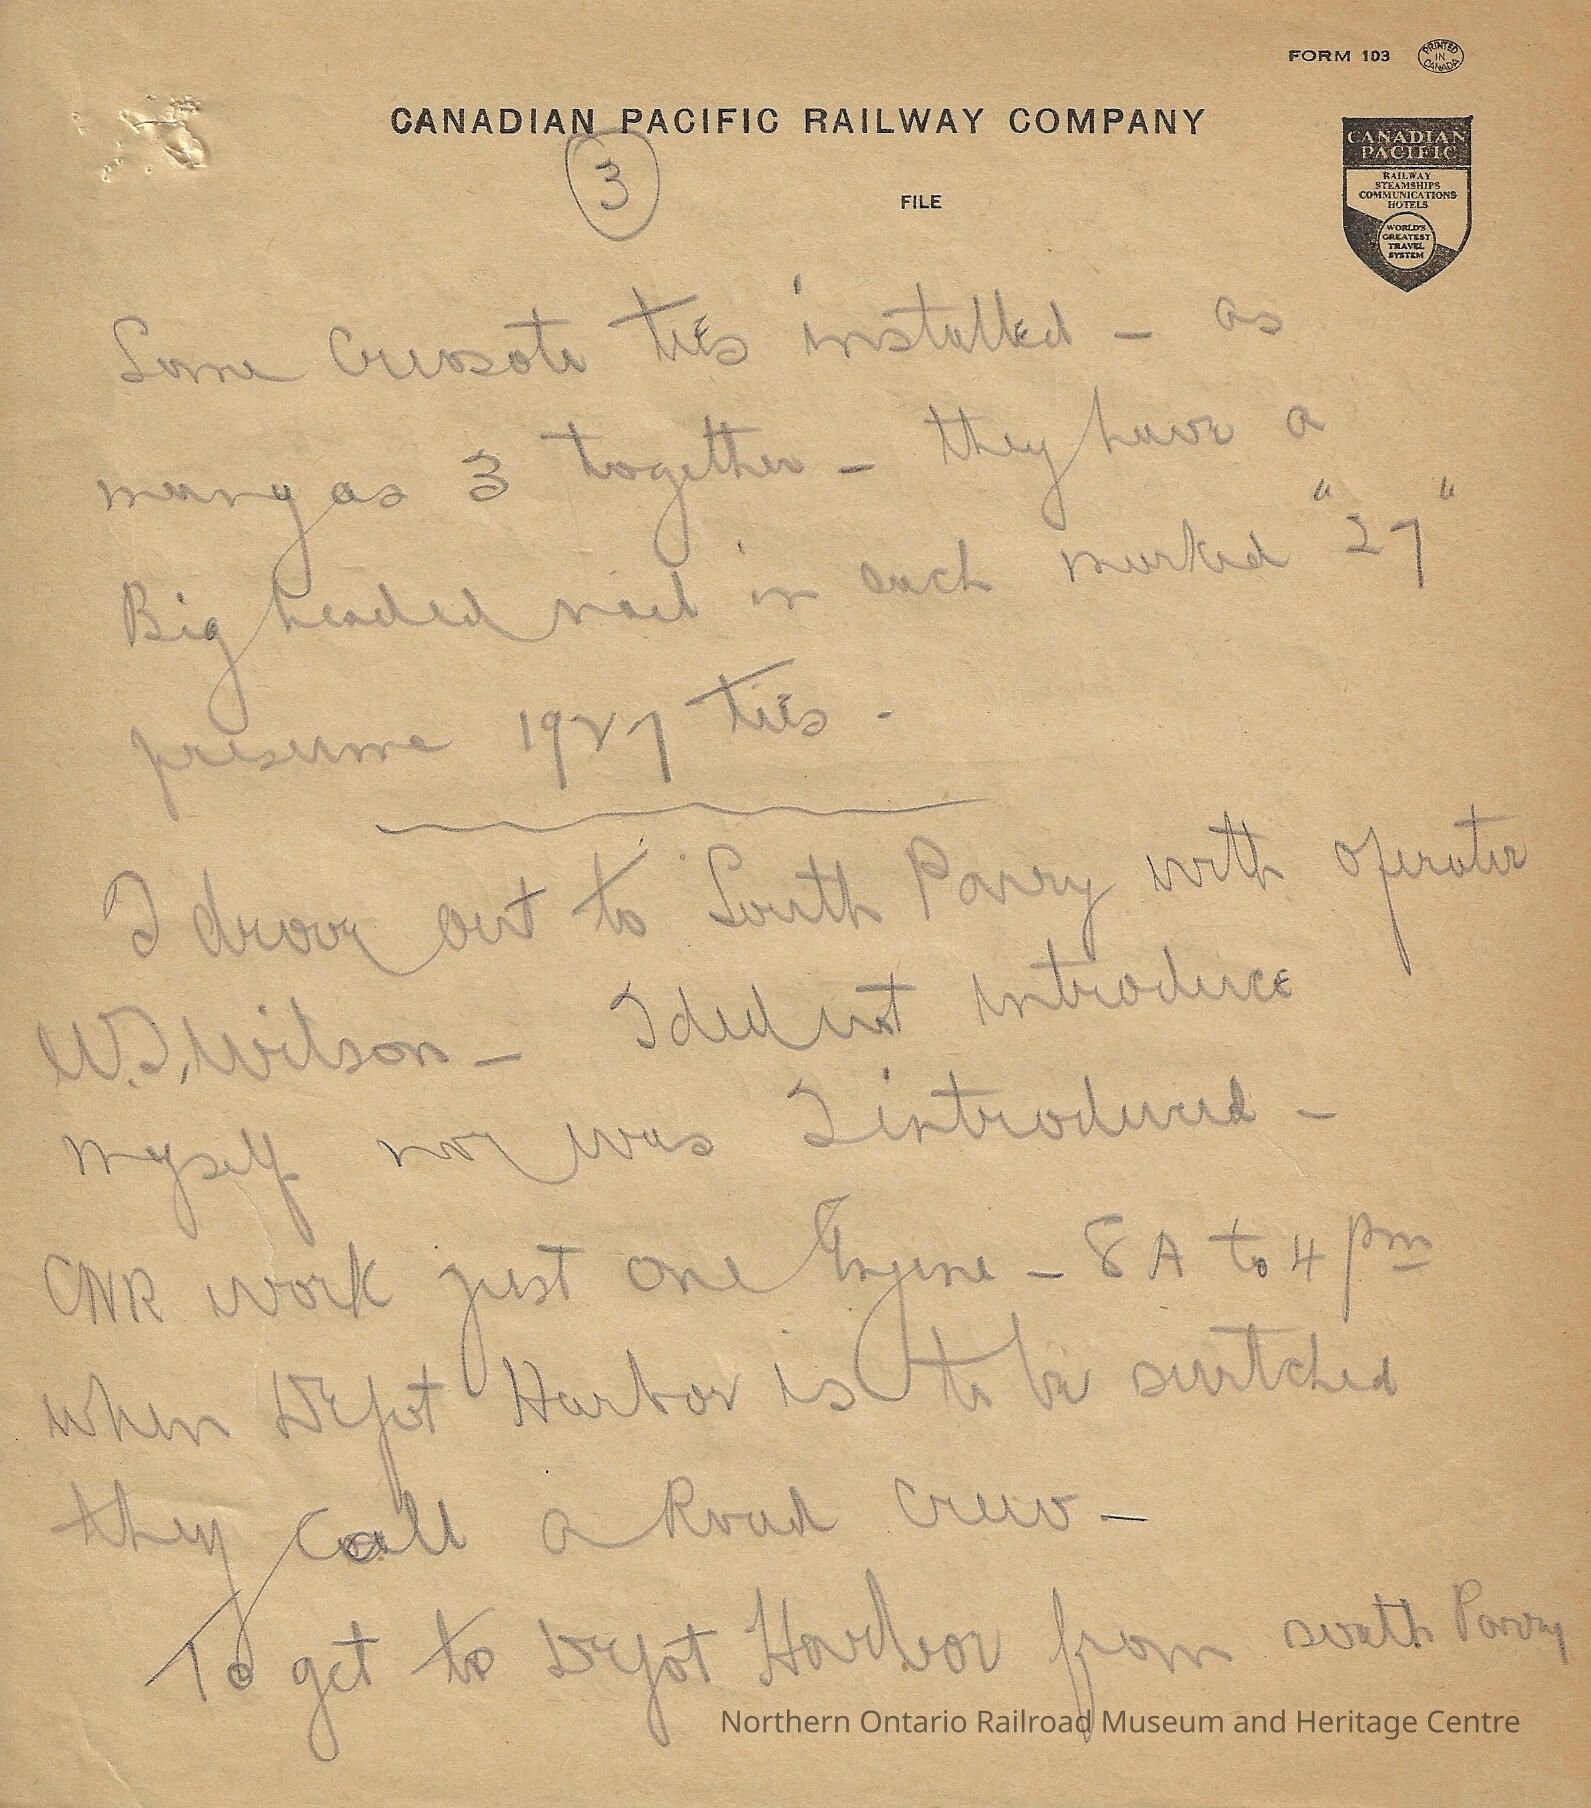 FORM 103
PRINTED IN CANADA
CANADIAN PACIFIC RAILWAY COMPANY
3
FILE
CANADIAN
PACIFIC
RAILWAY
STEAMSHIPS
COMMUNICATIONS
HOTELS
WORLD'S
GREATEST
TRAVEL
SYSTEM
Some Creosote ties installed - as
many as 3 together - they have a
Big headed nail in each marked "27"
presume 1927 ties.
I drove out to South Parry with operator
W.J. Wilson - I did not introduce
myself nor was I introduced -
CNR work just one Engine - 8A to 4 pm
when Depot Harbor is to be switched
they call a Road crew -
To get to Depot Harbor from south Parry
Northern Ontario Railroad Museum and Heritage Centre